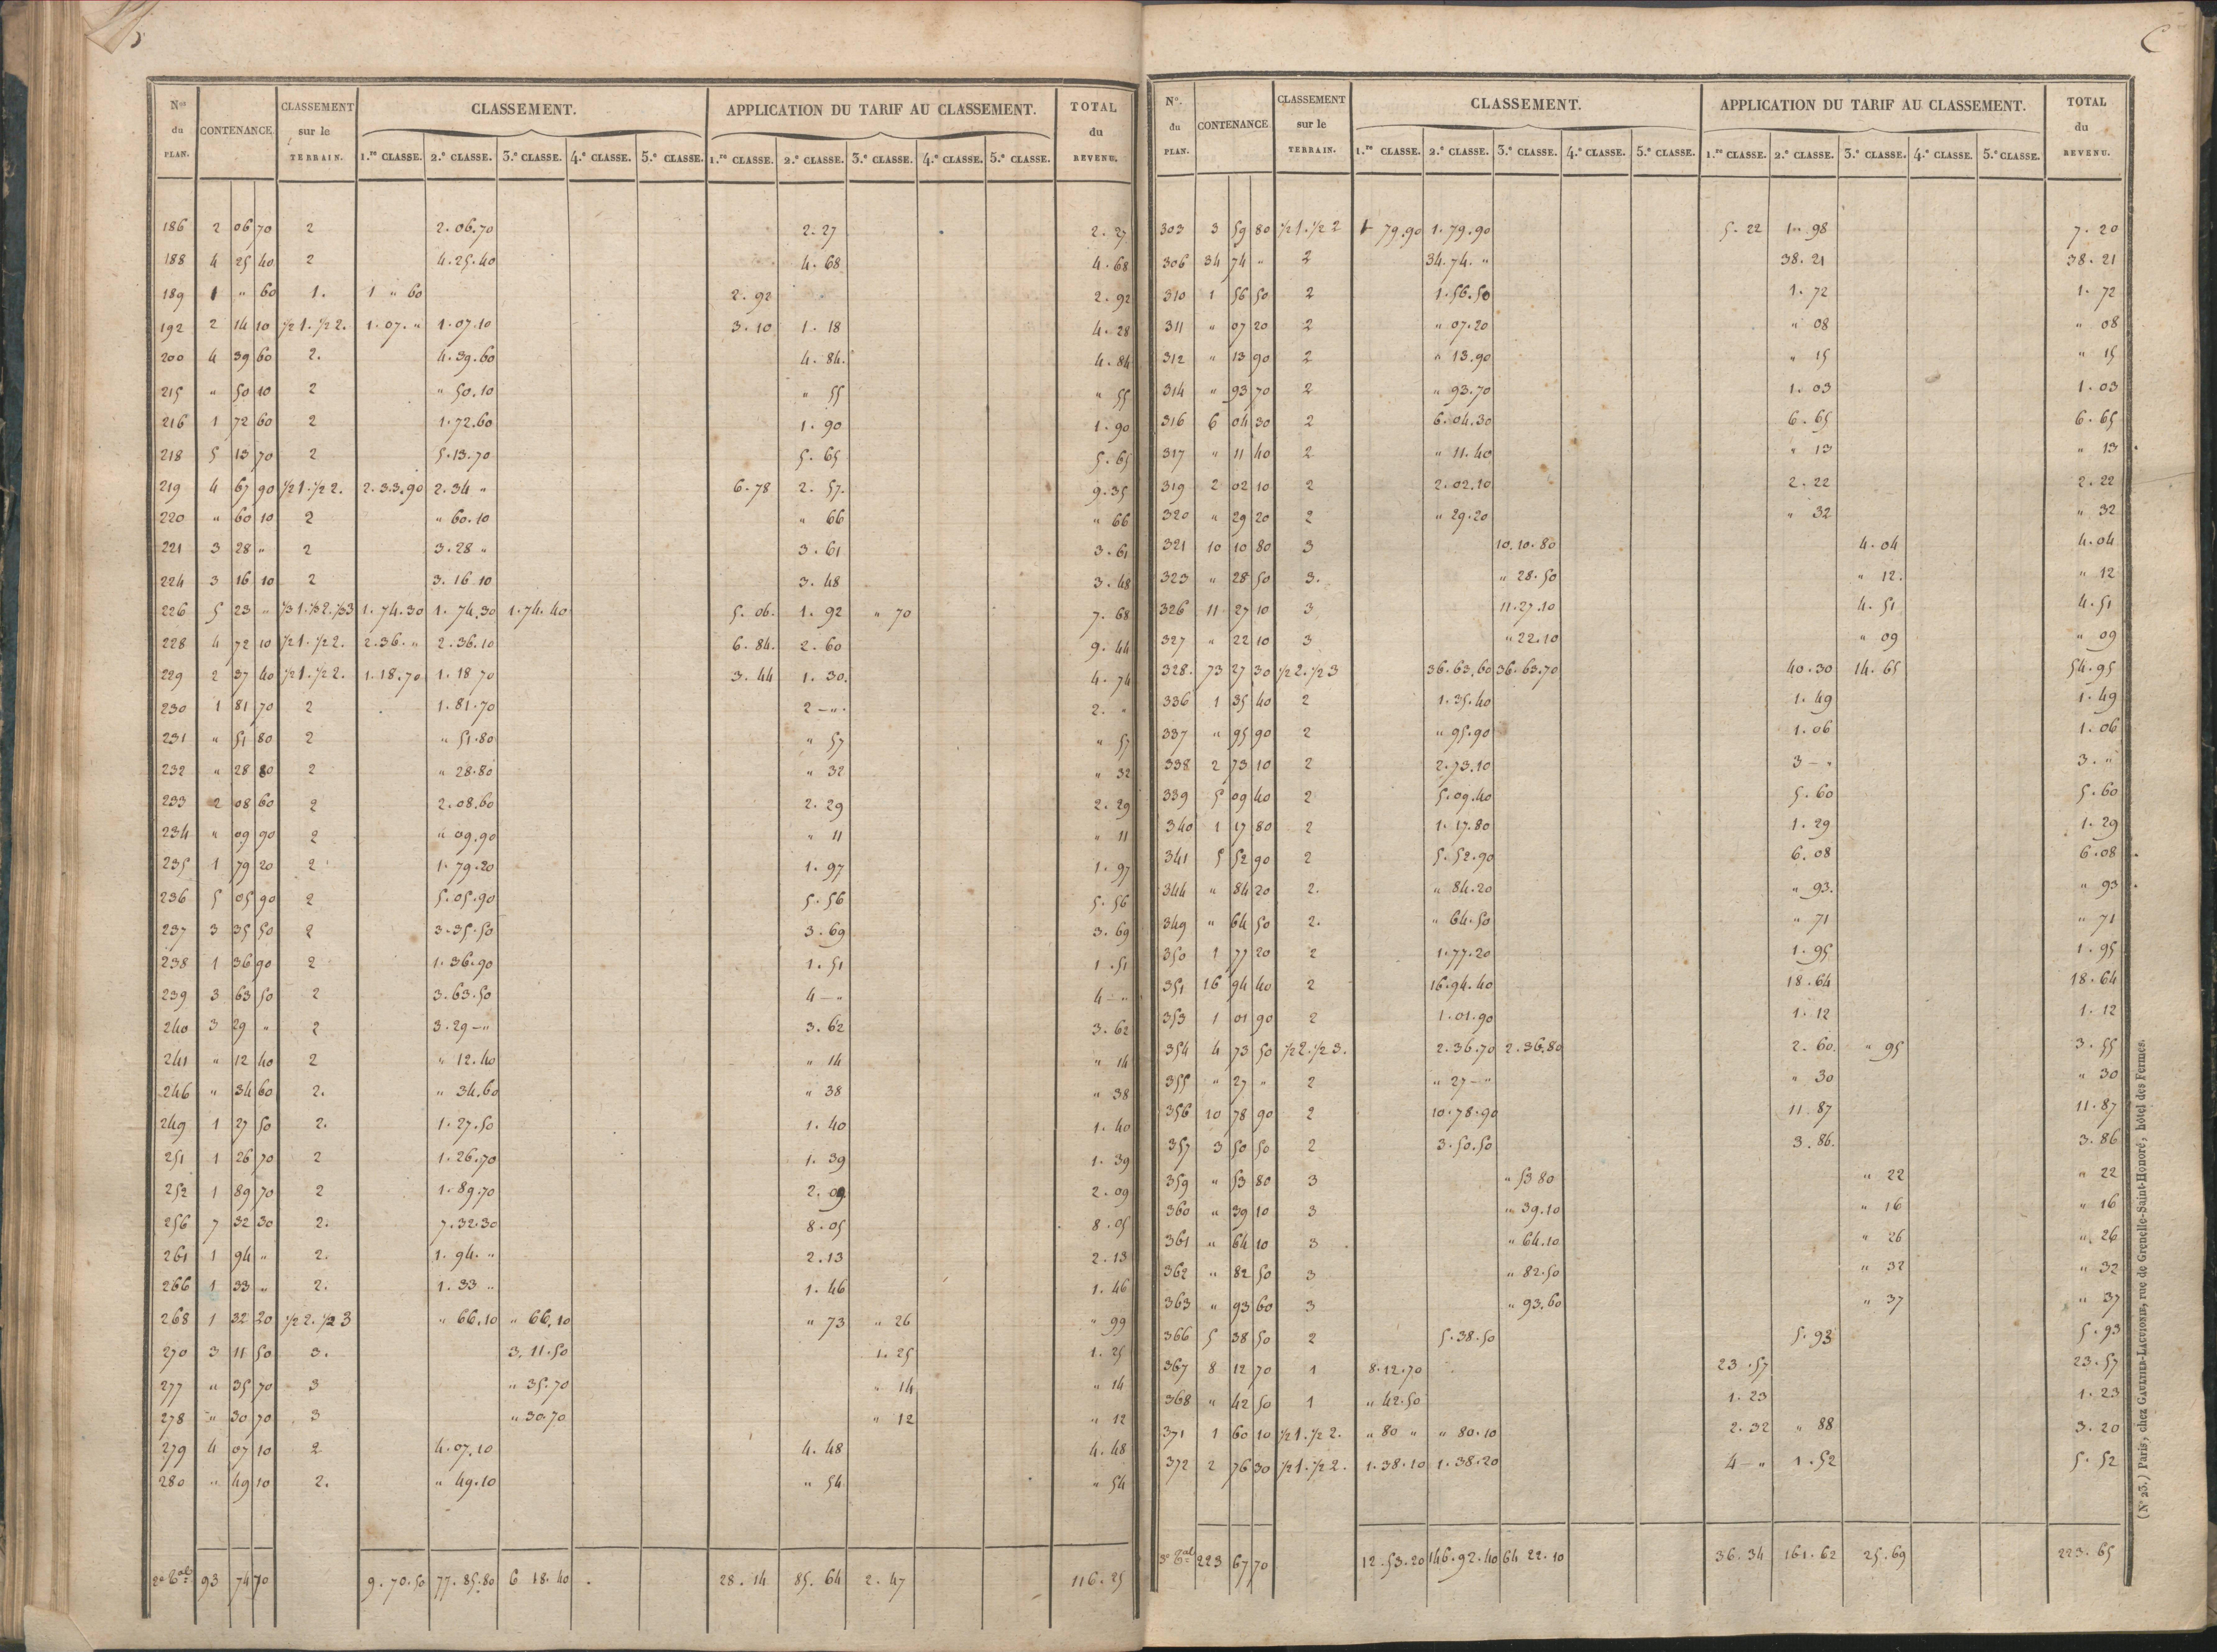 Nos du PLAN. CONTENANCE CLASSEMENT sur le TERRAIN. CLASSEMENT. APPLICATION DU TARIF AU CLASSEMENT. TOTAL du REVENU.
1.re CLASSE. 2.e CLASSE. 3.e CLASSE. 4.e CLASSE. 5.e CLASSE. 1.re CLASSE. 2.e CLASSE. 3.e CLASSE. 4.e CLASSE. 5.e CLASSE.
186 2 06 70 2 2. 06. 70 2. 27 2. 27
188 4 25 40 2 4. 25. 40 4. 68 4. 68
189 1 " 60 1. 1 " 60 2. 92 2. 92
192 2 14 10 1/2 1. 1/2 2. 1. 07. " 1. 07. 10 3. 10 1. 18 4. 28
200 4 39 60 2. 4. 39. 60 4. 84. 4. 84
215 " 50 10 2 " 50. 10 " 55 " 55
216 1 72 60 2 1. 72. 60 1. 90 1. 90
218 5 13 70 2 5. 13. 70 5. 65 5. 65
219 4 67 90 1/2 1. 1/2 2. 2. 33. 90 2. 34 " 6. 78 2. 57. 9. 35
220 " 60 10 2 " 60. 10 " 66 " 66
221 3 28 " 2 3. 28 " 3. 61 3. 61
224 3 16 10 2 3. 16 10 3. 48 3. 48
226 5 23 " 1/3 1. 1/3 2. 1/3 3 1. 74. 30 1. 74. 30 1. 74. 40 5. 06. 1. 92 " 70 7. 68
228 4 72 10 1/2 1. 1/2 2. 2. 36. " 2. 36. 10 6. 84. 2. 60 9. 44
229 2 37 40 1/2 1. 1/2 2. 1. 18. 70 1. 18 70 3. 44 1. 30. 4. 74
230 1 81 70 2 1. 81. 70 2 — ". 2. "
231 " 51 80 2 " 51. 80 " 57 " 57
232 " 28 80 2 " 28. 80 " 32 " 32
233 2 08 60 2 2. 08. 60 2. 29 2. 29
234 " 09 90 2 " 09. 90 " 11 " 11
235 1 79 20 2 1. 79. 20 1. 97 1. 97
236 5 05 90 2 5. 05. 90 5. 56 5. 56
237 3 35 50 2 3. 35. 50 3. 69 3. 69
238 1 36 90 2 1. 36. 90 1. 51 1. 51
239 3 63 50 2 3. 63. 50 4 — " 4 — "
240 3 29 " 2 3. 29 — " 3. 62 3. 62
241 " 12 40 2 " 12. 40 " 14 " 14
246 " 34 60 2. " 34. 60 " 38 " 38
249 1 27 50 2. 1. 27. 50 1. 40 1. 40
251 1 26 70 2 1. 26. 70 1. 39 1. 39
252 1 89 70 2 1. 89. 70 2. 09 2. 09
256 7 32 30 2. 7. 32. 30 8. 05 8. 05
261 1 94 " 2. 1. 94. " 2. 13 2. 13
266 1 33 " 2. 1. 33 " 1. 46 1. 46
268 1 32 20 1/2 2. 1/2 3 " 66. 10 " 66. 10 " 73 " 26 " 99
270 3 11 50 3. 3. 11. 50 1. 25 1. 25
277 " 35 70 3 " 35. 70 " 14 " 14
278 " 30 70 3 " 30. 70 " 12 " 12
279 4 07 10 2 4. 07. 10 4. 48 4. 48
280 " 49 10 2. " 49. 10 " 54 " 54
2e Tal 93 74 70 9. 70. 50 77. 85. 80 6 18. 40 28. 14 85. 64 2. 47 116. 25
No. du PLAN. CONTENANCE CLASSEMENT sur le TERRAIN. CLASSEMENT. APPLICATION DU TARIF AU CLASSEMENT. TOTAL du REVENU.
1.re CLASSE. 2.e CLASSE. 3.e CLASSE. 4.e CLASSE. 5.e CLASSE. 1.re CLASSE. 2.e CLASSE. 3.e CLASSE. 4.e CLASSE. 5.e CLASSE.
303 3 59 80 1/2 1. 1/2 2 1 79. 90 1. 79. 90 5. 22 1. 98 7. 20
306 34 74 " 2 34. 74. " 38. 21 38. 21
310 1 56 50 2 1. 56. 50 1. 72 1. 72
311 " 07 20 2 " 07. 20 " 08 " 08
312 " 13 90 2 " 13. 90 " 15 " 15
314 " 93 70 2 " 93. 70 1. 03 1. 03
316 6 04 30 2 6. 04. 30 6. 65 6. 65
317 " 11 40 2 " 11. 40 " 13 " 13
319 2 02 10 2 2. 02. 10 2. 22 2. 22
320 " 29 20 2 " 29. 20 " 32 " 32
321 10 10 80 3 10. 10. 80 4. 04 4. 04
323 " 28 50 3. " 28. 50 " 12. " 12
326 11 27 10 3 11. 27. 10 4. 51 4. 51
327 " 22 10 3 " 22. 10 " 09 " 09
328. 73 27 30 1/2 2. 1/2 3 36. 63. 60 36. 63. 70 40. 30 14. 65 54. 95
336 1 35 40 2 1. 35. 40 1. 49 1. 49
337 " 95 90 2 " 95. 90 1. 06 1. 06
338 2 73 10 2 2. 73. 10 3 — " 3. "
339 5 09 40 2 5. 09. 40 5. 60 5. 60
340 1 17 80 2 1. 17. 80 1. 29 1. 29
341 5 52 90 2 5. 52. 90 6. 08 6. 08
344 " 84 20 2. " 84. 20 " 93. " 93
349 " 64 50 2. " 64. 50 " 71 " 71
350 1 77 20 2 1. 77. 20 1. 95 1. 95
351 16 94 40 2 16. 94. 40 18. 64 18. 64
353 1 01 90 2 1. 01. 90 1. 12 1. 12
354 4 73 50 1/2 2. 1/2 3. 2. 36. 70 2. 36. 80 2. 60. " 95 3. 55
355 " 27 " 2 " 27 — " " 30 " 30
356 10 78 90 2 10. 78. 90 11. 87 11. 87
357 3 50 50 2 3. 50. 50 3. 86. 3. 86
359 " 53 80 3 " 53 80 " 22 " 22
360 " 39 10 3 " 39. 10 " 16 " 16
361 " 64 10 3 " 64. 10 " 26 " 26
362 " 82 50 3 " 82. 50 " 32 " 32
363 " 93 60 3 " 93. 60 " 37 " 37
366 5 38 50 2 5. 38. 50 5. 93 5. 93
367 8 12 70 1 8. 12. 70 23. 57 23. 57
368 " 42 50 1 " 42. 50 1. 23 1. 23
371 1 60 10 1/2 1. 1/2 2. " 80 " " 80. 10 2. 32 " 88 3. 20
372 2 76 30 1/2 1. 1/2 2. 1. 38. 10 1. 38. 20 4 — " 1. 52 5. 52
3e Tal 223 67 70 12. 53. 20 146. 92. 40 64 22. 10 36. 34 161. 62 25. 69 223. 65
(No 23.) Paris, chez GAULTIER-LAGUIONIE, rue de Grenelle-Saint-Honoré, hôtel des Fermes.